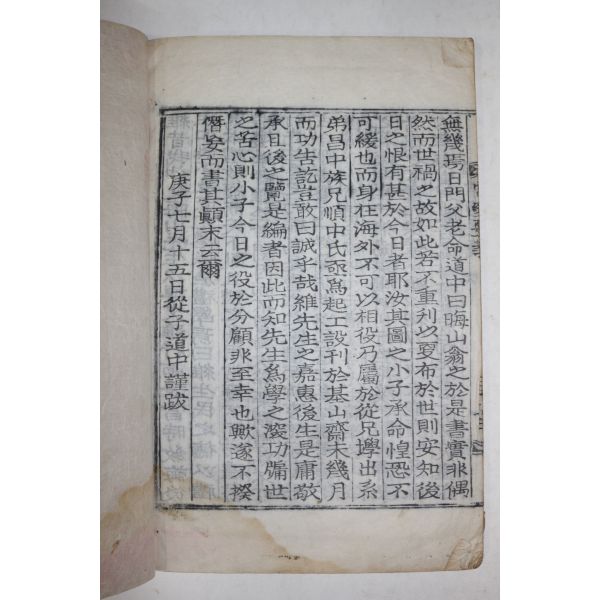 無幾焉日門父老命道中曰晦山翁之於是書實非偶
然而世禍之故如此若不重利以夏布於世則安知後
日之恨有甚於今日者耶汝其圖之小子承命惶恐不
可緩也而身在海外不可以相役乃屬於從兄㙾出系
弟昌中族兄順中氏亟爲起工設刊於基山齋未幾月
而功告訖豈敢曰誠乎哉維先生之嘉惠後生是庸敬
承且後之覽是編者因此而知先生爲學之深功牖世
之苦心則小子今日之役於分願非至幸也歟遂不揆
僭妄而書其顚末云爾
庚子七月十五日從子道中謹跋